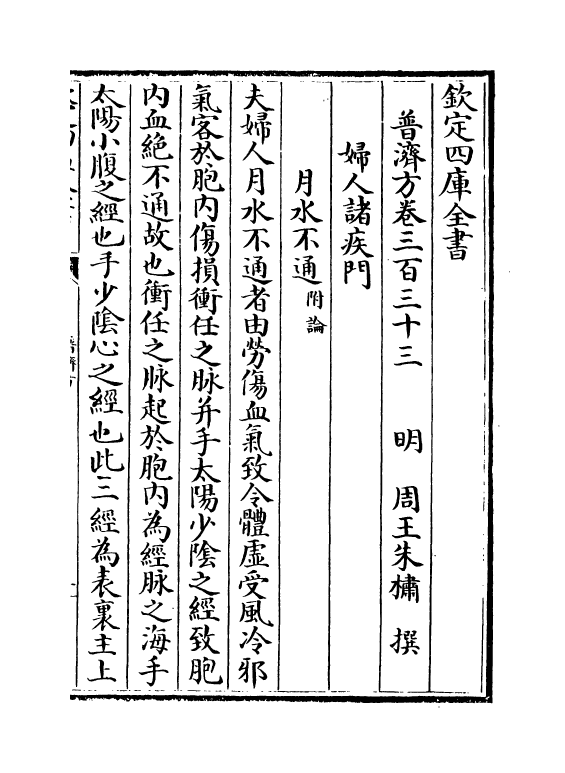 欽定四庫全書
普濟方卷三百三十三　明　周王朱橚　撰
婦人諸疾門
月水不通附論
夫婦人月水不通者由勞傷血氣致令體虛受風冷邪
氣客於胞内傷損衝任之脉并手太陽少隂之經致胞
内血絶不通故也衝任之脉起於胞内為經脉之海手
太陽小腹之經也手少隂心之經也此三經為表裏主上